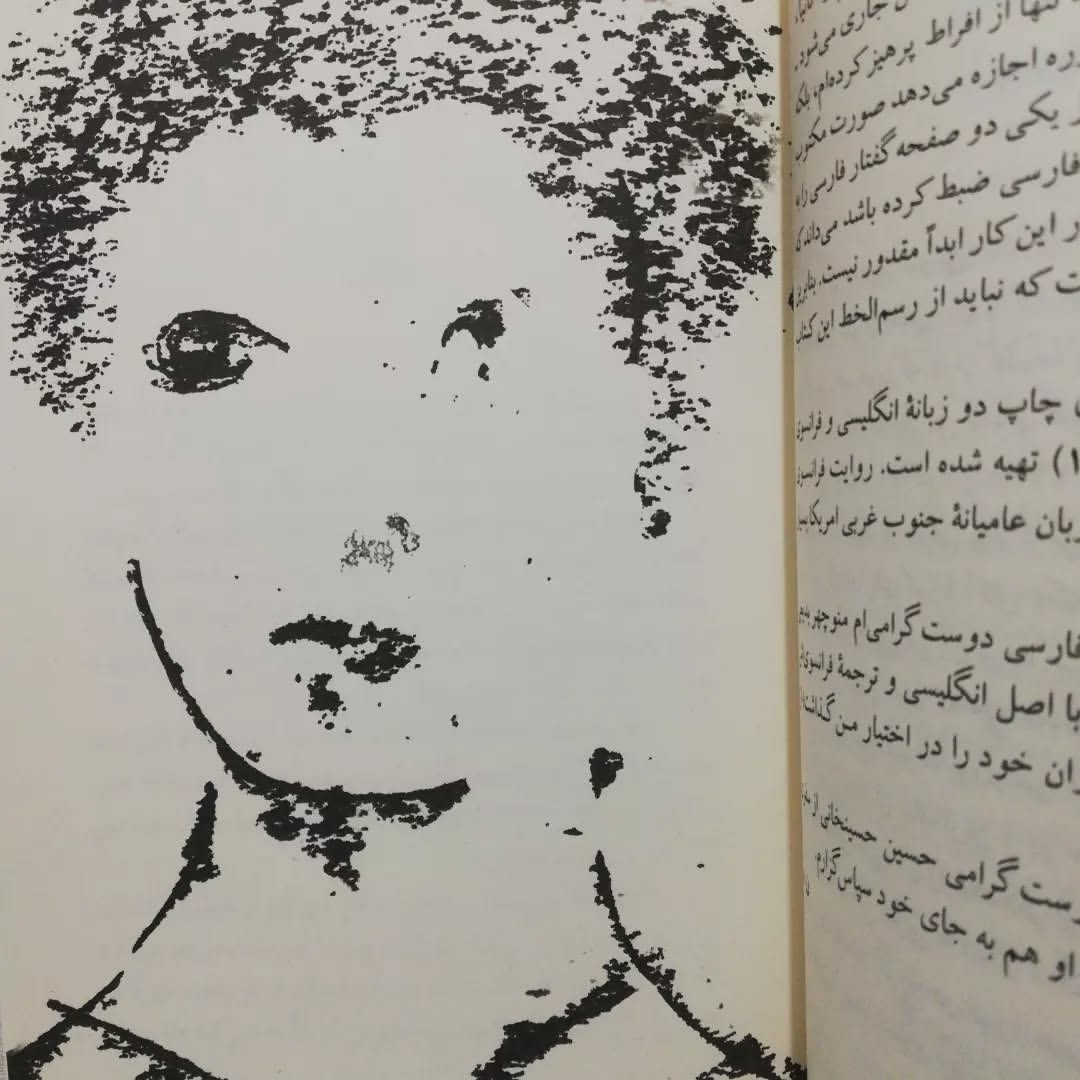 جاری می‌شود،
تنها از افراط پرهیز کرده‌ام، بلکه
اجازه می‌دهد صورت مکتوب
یکی دو صفحه گفتار فارسی را به
فارسی ضبط کرده باشد می‌داند که
این کار ابداً مقدور نیست. بنابراین
که نباید از رسم‌الخط این کتاب
چاپ دو زبانهٔ انگلیسی و فرانسوی
تهیه شده است. روایت فرانسوی
عامیانهٔ جنوب غربی امریکا
دوست گرامی‌ام منوچهر
با اصل انگلیسی و ترجمهٔ فرانسوی
خود را در اختیار من گذاشت
گرامی حسین حسینخانی از
او هم به جای خود سپاس‌گزارم.